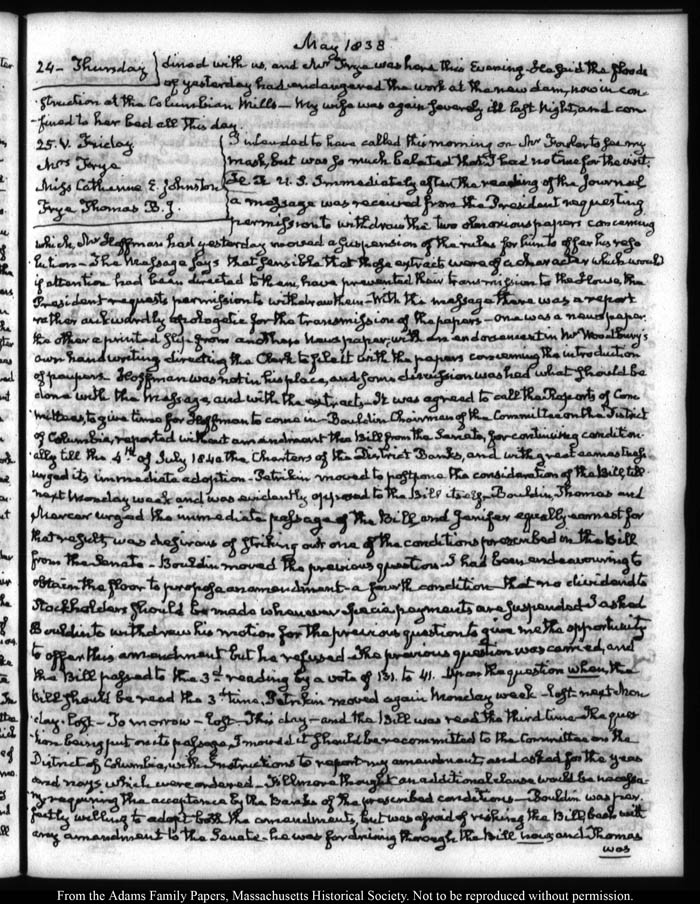 May 1838
24 - Thursday dined with us, and Mr Frye was here this Evening. He said the floods
of yesterday had endangered the work at the new dam, now in con-
struction at the Columbian Mills - My wife was again severely ill last Night, and con-
fined to her bed all this day.
25. V. Friday
Mrs Frye
Miss Catherine E. Johnston
Frye Thomas B. J.
I intended to have called this morning on Mr Fowler to see my
mask, but was so much belated that I had no time for the visit.
U. S. Immediately after the reading of the Journal
a message was received from the President requesting
permission to withdraw the two obnoxious papers concerning
which Mr Hoffman had yesterday moved a suspension of the rules for him to offer his reso-
lution - The Message says that sensible that those extracts were of a character which would
if attention had been directed to them, have prevented their transmission to the House, the
President requests permission to withdraw them - With the message there was a report
rather awkwardly apologetic for the transmission of the papers - one was a newspaper.
the other a printed slip from another Newspaper, with an endorsement in Mr Woodbury's
own hand writing directing the Clerk to file it with the papers concerning the introduction
of paupers. Hoffman was not in his place, and some discussion was had what should be
done with the Message, and with the extracts. It was agreed to call the Reports of Com-
mittees, to give time for Hoffman to come in - Bouldin Chairman of the Committee on the District
of Columbia, reported without amendment the Bill from the Senate, for continuing condition-
ally till the 4th of July 1840 the Charters of the District Banks, and with great earnestness
urged its immediate adoption - Petrikin moved to postpone the consideration of the Bill till
next Monday week and was evidently opposed to the Bill itself - Bouldin, Thomas and
Mercer urged the immediate passage of the Bill and Jenifer equally earnest for
that result, was desirous of striking out one of the conditions prescribed in the Bill
from the Senate - Bouldin moved the previous question. I had been endeavouring to
obtain the floor to propose an amendment - a fourth condition - that no dividend to
Stockholders should be made whenever specie payments are suspended - I asked
Bouldin to withdraw his motion for the previous question to give me the opportunity
to offer this amendment but he refused - The previous question was carried, and
the Bill passed to the 3d reading by a vote of 131. to 41. Upon the question when, the
bill should be read the 3d time, Petrikin moved again Monday week - lost - next Mon-
day - lost - To morrow - lost - This day - and the Bill was read the third time - The ques-
tion being put on its passage, I moved it should be recommitted to the Committee on the
District of Columbia, with Instructions to report my amendment, and asked for the yeas
and nays which were ordered - Fillmore thought an additional clause would be necessa-
ry requiring the acceptance by the Banks of the prescribed conditions - Bouldin was per-
fectly willing to adopt both the amendments, but was afraid of risking the Bill, back with
any amendment to the Senate - he was for driving through the Bill now, and Thomas
was
From the Adams Family Papers, Massachusetts Historical Society. Not to be reproduced without permission.